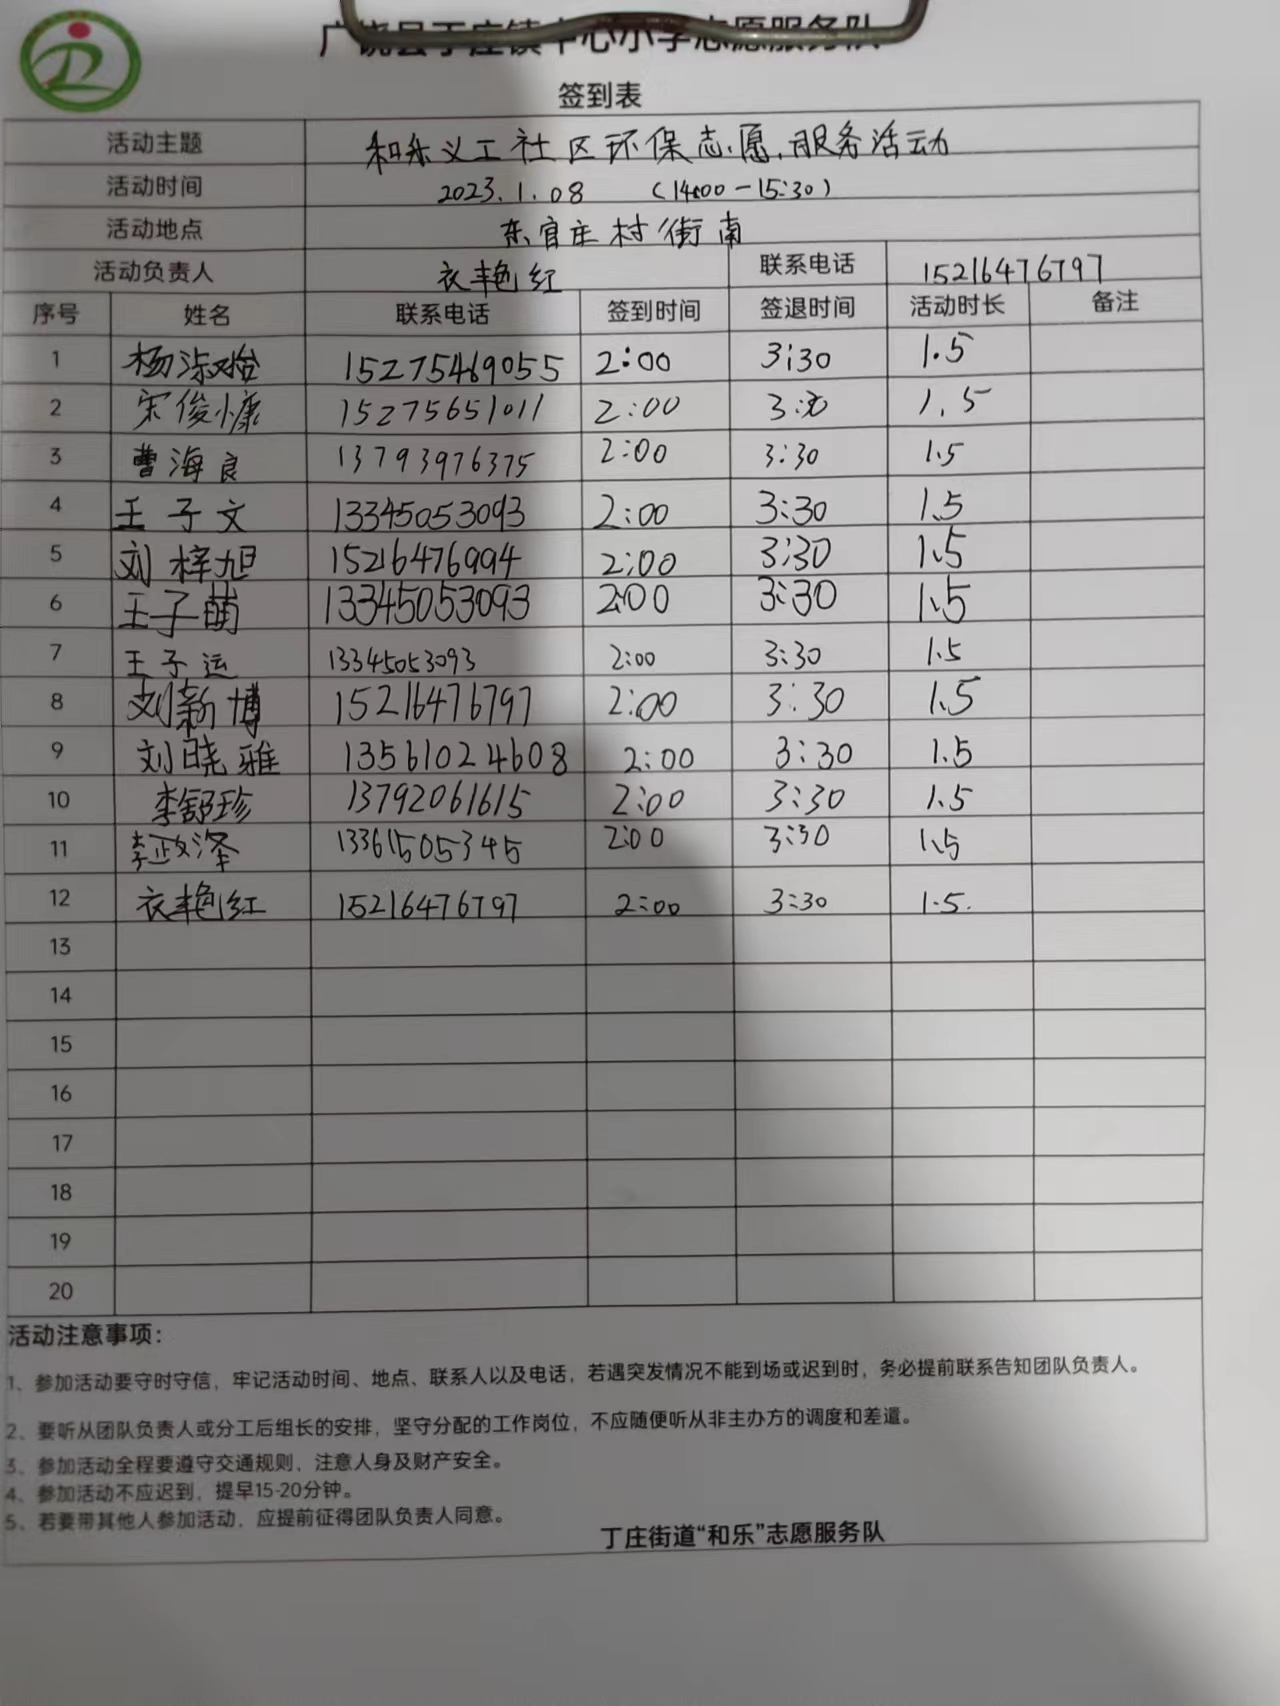 广饶县丁庄镇中心小学志愿服务队
签到表
活动主题 和乐义工社区环保志愿服务活动
活动时间 2023.1.08 (14:00-15:30)
活动地点 东官庄村街南
活动负责人 衣艳红 联系电话 15216476797
序号 姓名 联系电话 签到时间 签退时间 活动时长 备注
1 15275469055 2:00 3:30 1.5
2 宋俊慷 15275651011 2:00 3:30 1.5
3 曹海良 13793976375 2:00 3:30 1.5
4 王子文 13345053093 2:00 3:30 1.5
5 刘梓旭 15216476994 2:00 3:30 1.5
6 王子萌 13345053093 2:00 3:30 1.5
7 王子运 13345053093 2:00 3:30 1.5
8 刘新博 15216476797 2:00 3:30 1.5
9 刘晓雅 13561024608 2:00 3:30 1.5
10 李舒珍 13792061615 2:00 3:30 1.5
11 李政泽 13361505345 2:00 3:30 1.5
12 衣艳红 15216476797 2:00 3:30 1.5.
13
14
15
16
17
18
19
20
活动注意事项：
1、参加活动要守时守信，牢记活动时间、地点、联系人以及电话，若遇突发情况不能到场或迟到时，务必提前联系告知团队负责人。
2、要听从团队负责人或分工后组长的安排，坚守分配的工作岗位，不应随便听从非主办方的调度和差遣。
3、参加活动全程要遵守交通规则，注意人身及财产安全。
4、参加活动不应迟到，提早15-20分钟。
5、若要带其他人参加活动，应提前征得团队负责人同意。
丁庄街道“和乐”志愿服务队